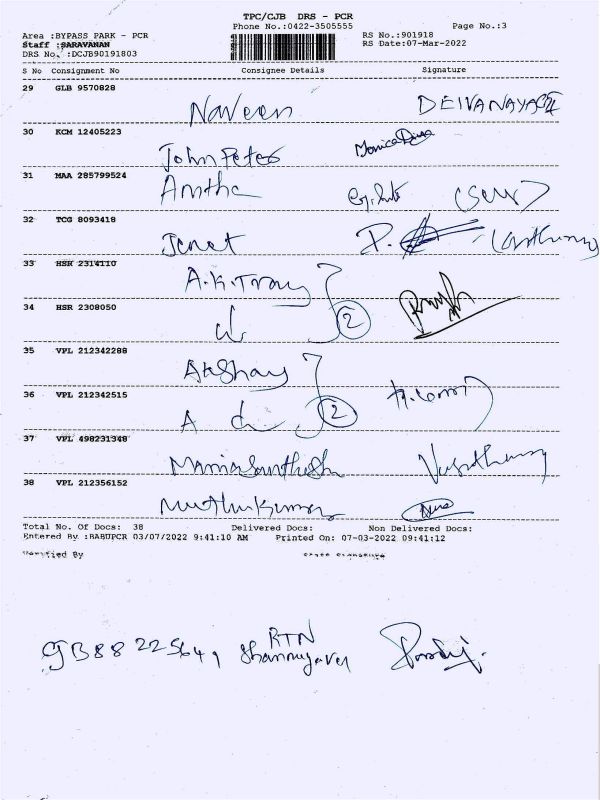 TPC/CJB DRS - PCR
Phone No.:0422-3505555 Page No.:3
Area :BYPASS PARK - PCR RS No.:901918
Staff :SARAVANAN RS Date:07-Mar-2022
DRS No. :DCJB90191803
S No Consignment No Consignee Details Signature
29 GLB 9570828
Naveen DEIVANAYAGI
30 KCM 12405223
John Peter Monica
31 MAA 285799524
Amtha
32 TCG 8093418
Jenet P.
33 HSR 2314110
A.K.Troy
34 HSR 2308050
2
35 VPL 212342288
Akshay
36 VPL 212342515
A 2
37 VPL 498231348
38 VPL 212356152
Muthukumar
Total No. Of Docs: 38 Delivered Docs: Non Delivered Docs:
Entered By :BABUPCR 03/07/2022 9:41:10 AM Printed On: 07-03-2022 09:41:12
Verified By
RTN